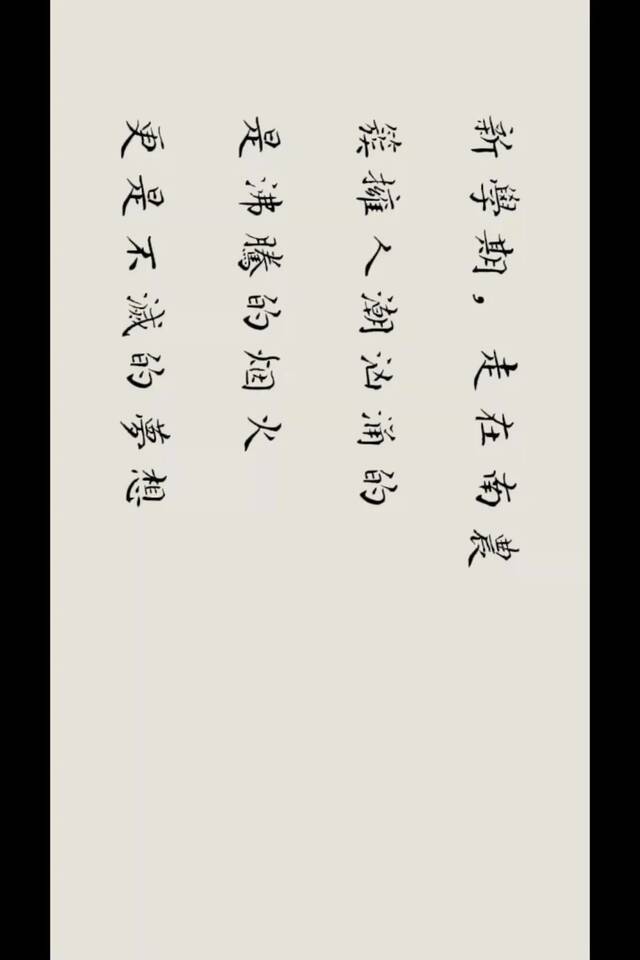 新學期，走在南農
簇擁人潮洶涌的
是沸騰的烟火
更是不滅的夢想